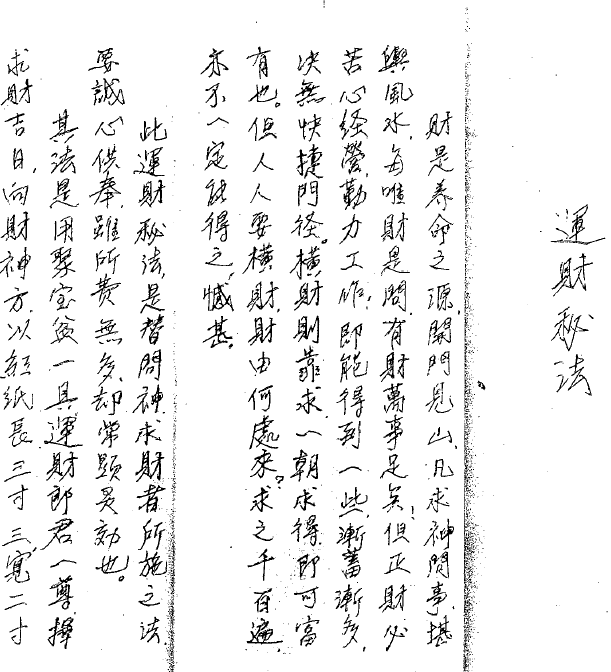 運財秘法
財是养命之源,開門見山,凡求神問事,堪
輿風水,每唯財是問,有財萬事足矣!但正財必
苦心経營,勤力工作,即能得到一些,漸蓄漸多,
决無快捷門径。橫財則靠求,一朝求得,即可富
有也。但人人要横財,財由何處來?求之千百遍,
亦不一定能得之,憾甚。
此運財秘法,是替問神求財者所施之法,
要誠心供奉,雖所費無多,却常顕灵効也。
其法是用聚宝盆一具,運財郎君一尊,擇
求財吉日,向財神方,以紅紙長三寸三,寬二寸